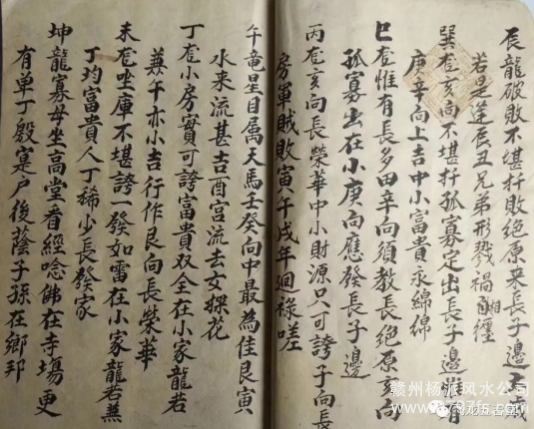 辰龍破敗不堪扦敗絕原来長子邊亥歲
若是逢辰丑兄弟形戮禍纒
巽龍亥向不堪扦孤寡定出長子邊惟有
庚辛向上吉中小富貴永綿綿
巳龍惟有長多田辛向須教長絕原亥向
孤寡出在小庚向應發長子邊
丙龍亥向長榮華中小財源只可誇子向長
房軍賊敗寅午戌年迴祿嗟
午竜星目属天馬壬癸向中最為佳艮寅
水来流甚吉酉宫流去女探花
丁龍小房實可誇富貴双全在小家龍若
兼午亦小吉行作艮向長榮華
未龍坐庫不堪誇一發如雷在小家龍若兼
丁均富貴人丁稀少長發家
坤龍寡母坐高堂看經唸佛在寺塲更
有单丁殷寔户後蔭子孫在鄉邦
赣州杨派风水公司
www.97fs.com